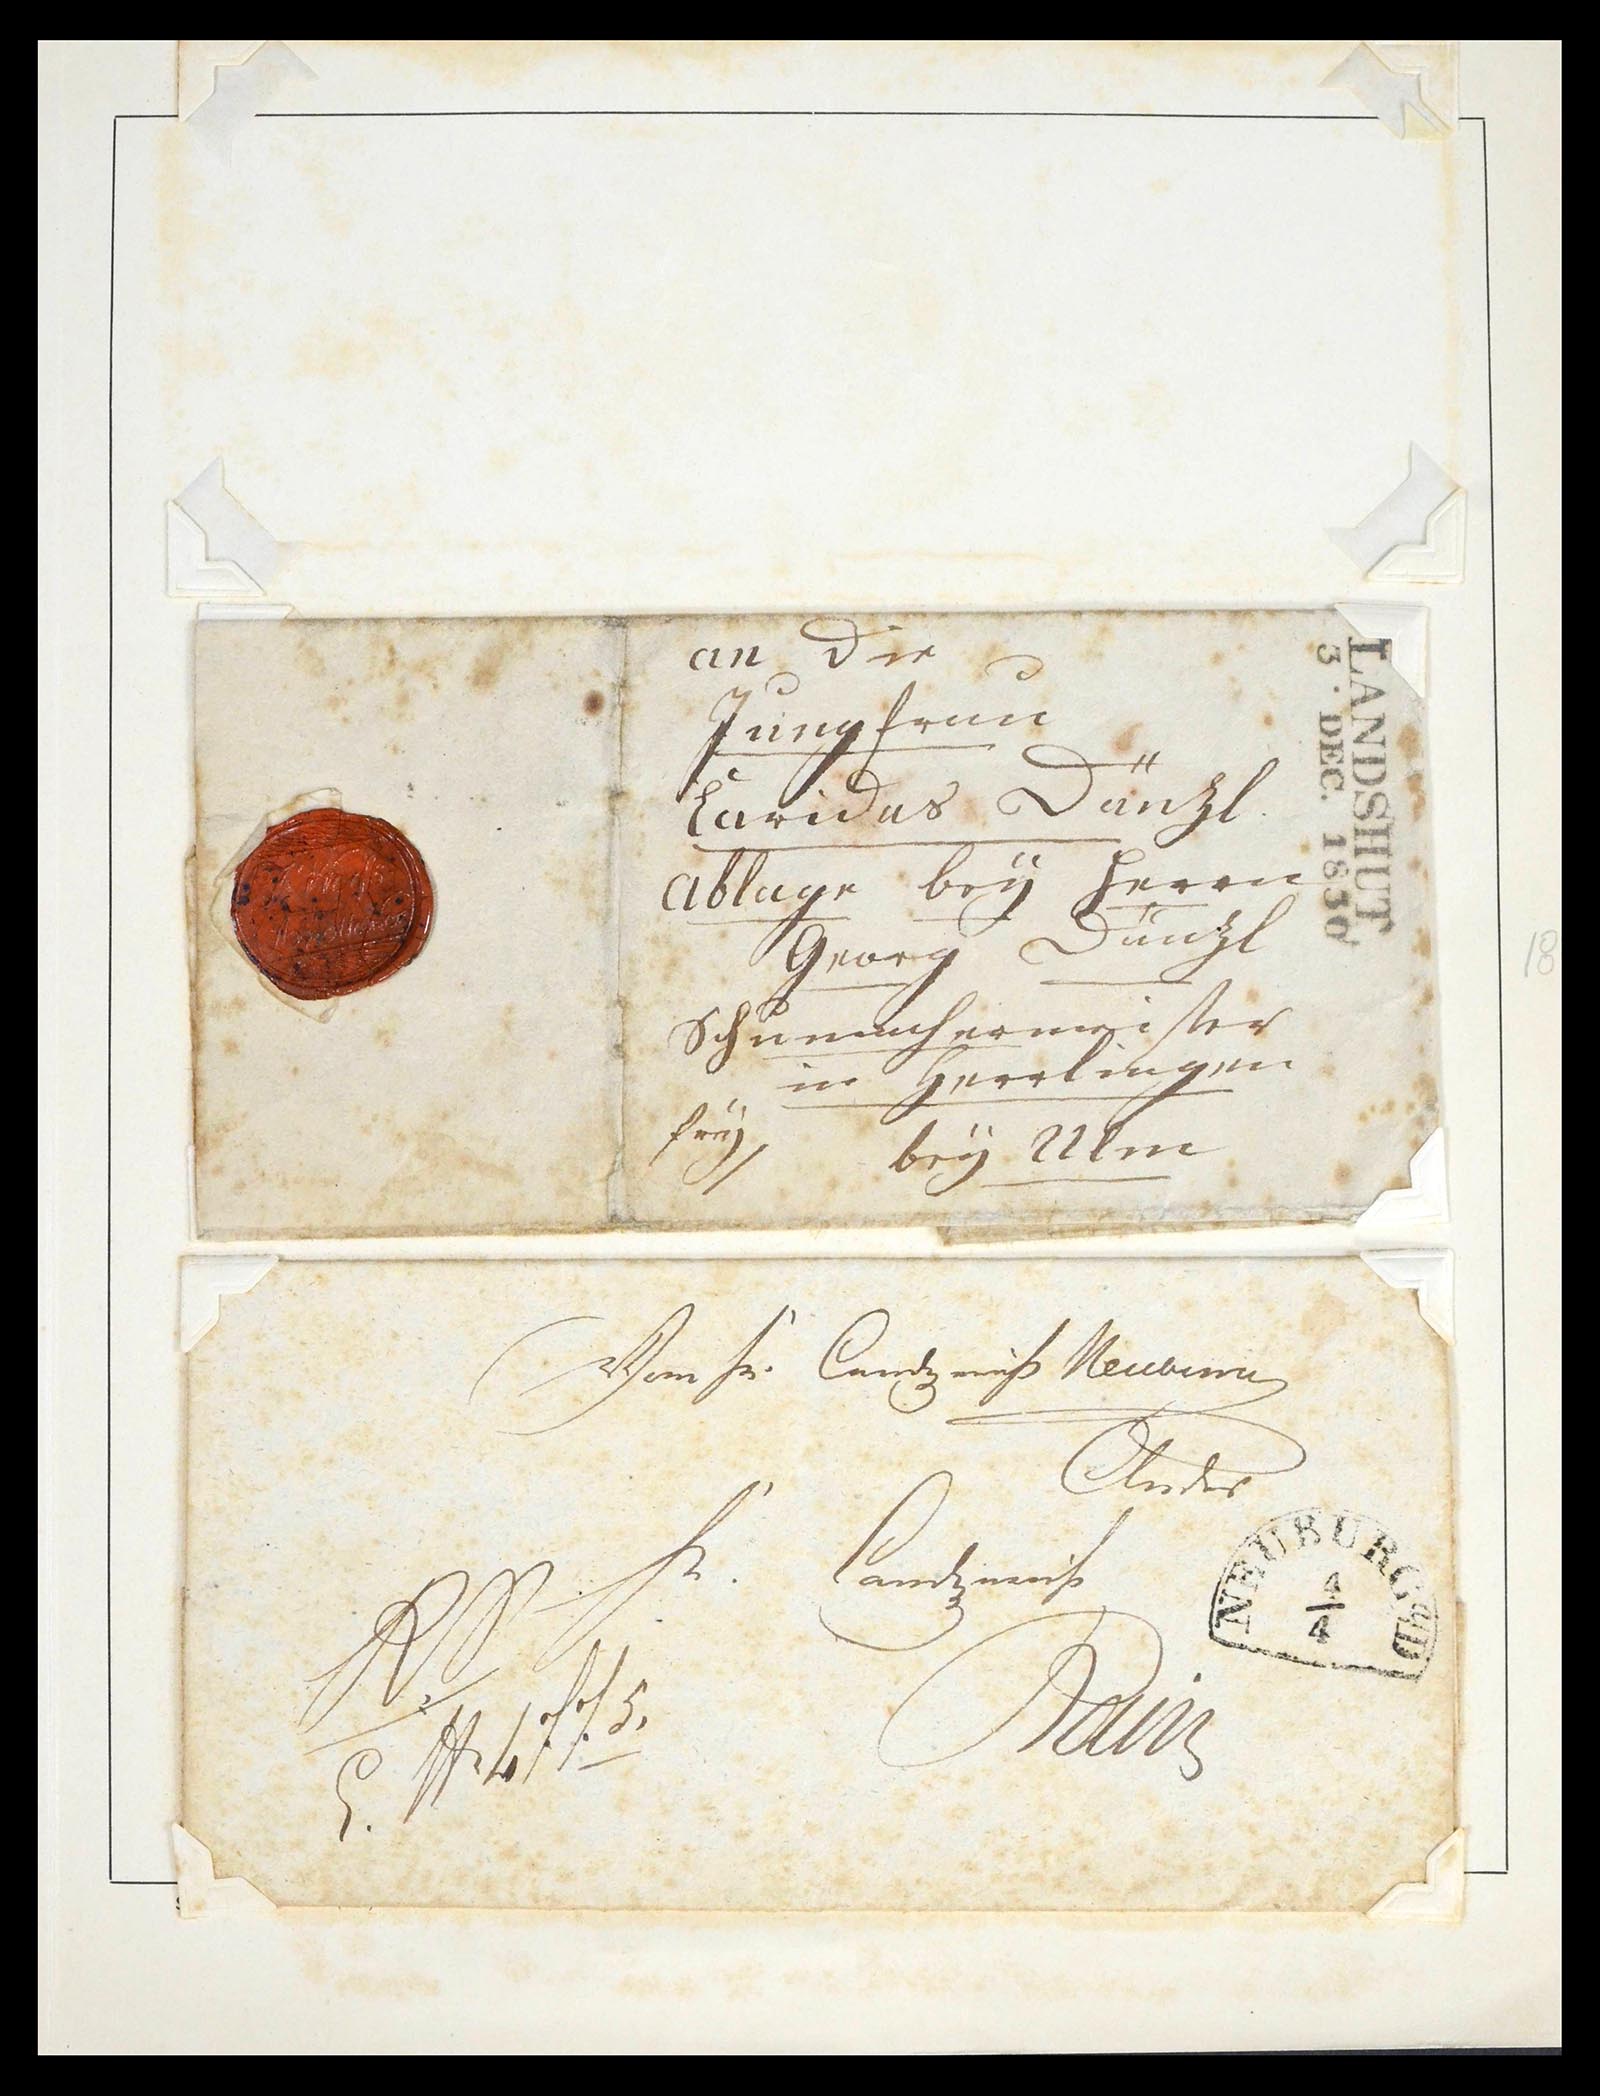 an die
Jungfrau
Daridas Dänzl.
Ablage bey Herrn
Georg Dänzl
Schumachermeister
in Herrlingen
frey
bey Ulm
LANDSHUT
5. DEC. 1830
18
Vom K. Landgericht Neuburg
An das
K. Landgericht
Rain
R. S.
NEUBURG a/D
4
4